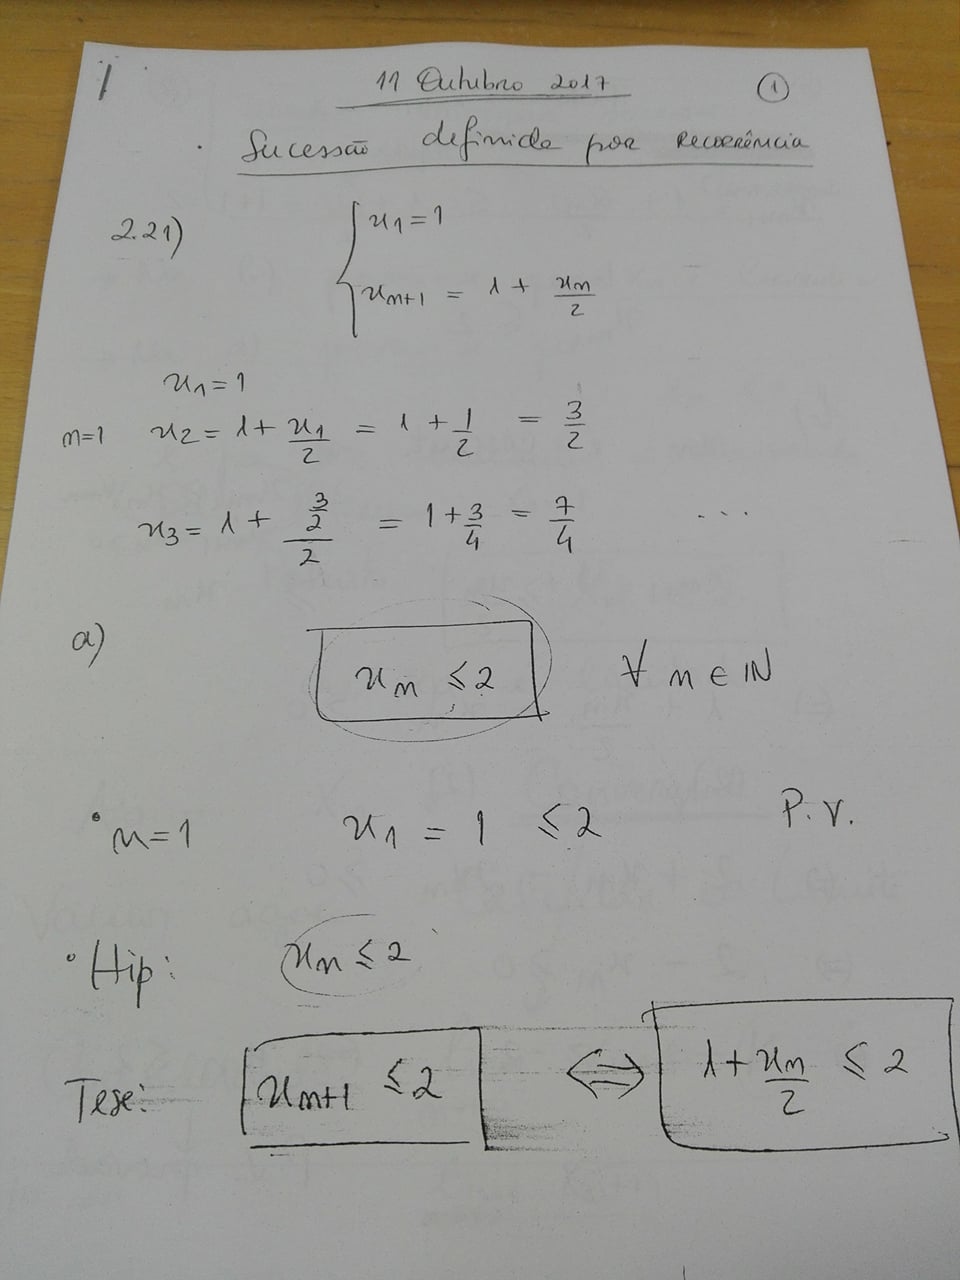 11 Outubro 2017 ①
Sucessão definida por recorrência
2.21) u₁ = 1
uₙ₊₁ = 1 + uₙ/2
u₁ = 1
n=1 u₂ = 1 + u₁/2 = 1 + 1/2 = 3/2
u₃ = 1 + (3/2)/2 = 1 + 3/4 = 7/4 ...
a) uₙ ≤ 2 ∀ n ∈ ℕ
• n=1 u₁ = 1 ≤ 2 P.V.
• Hip: uₙ ≤ 2
Tese: uₙ₊₁ ≤ 2 ⟺ 1 + uₙ/2 ≤ 2